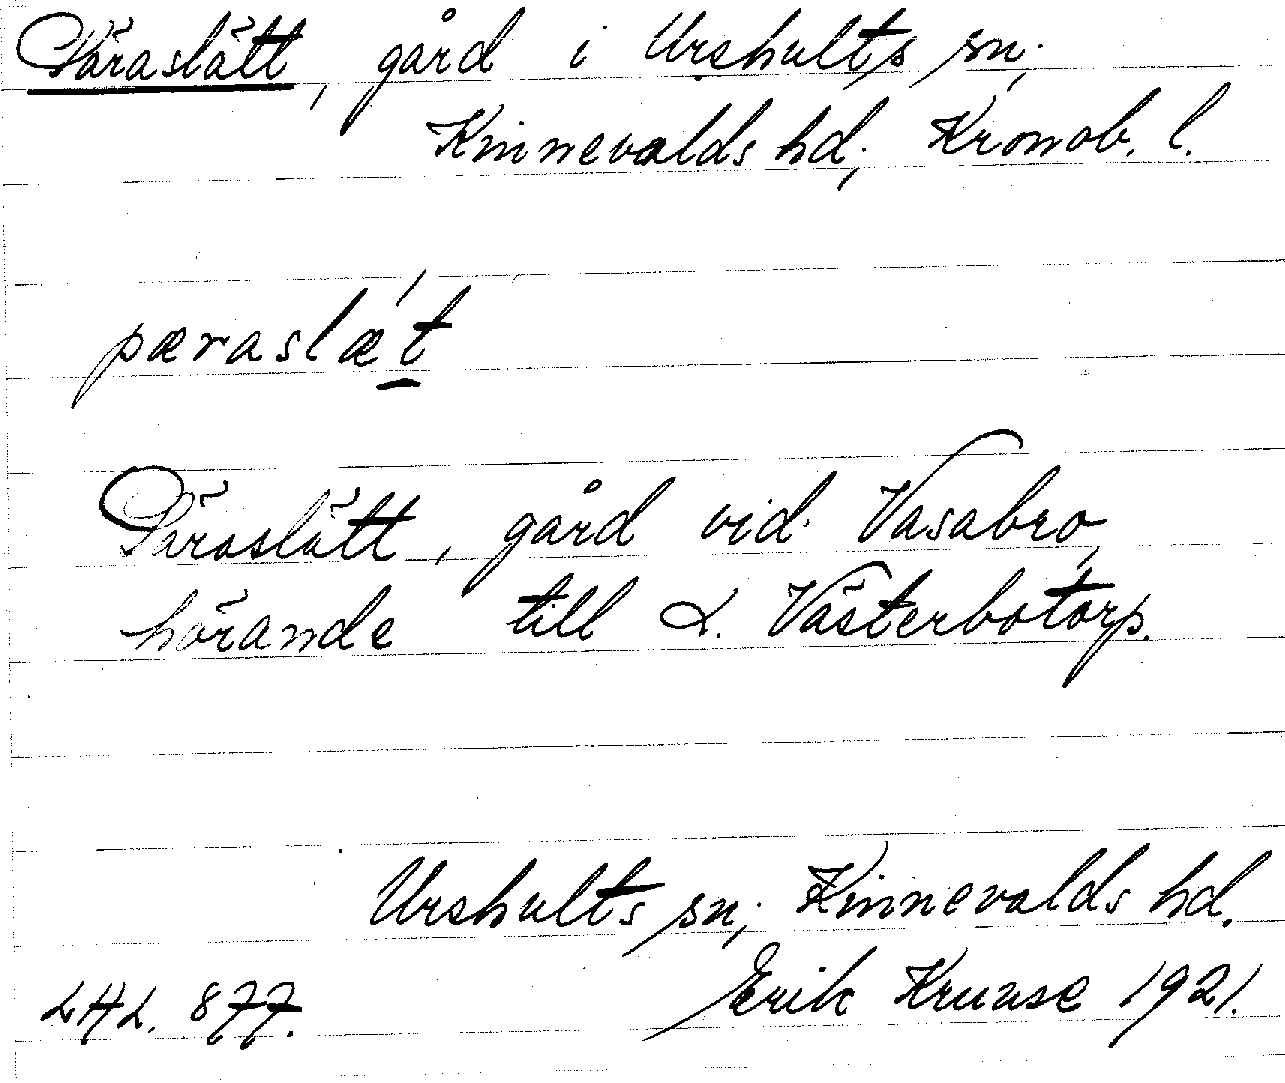 Päraslätt, gård i Urshults sn;
Kinnevalds hd; Kronob. l.
pæraslǽt
Päraslätt, gård vid Vasabro,
hörande till L. Västerbotorp.
Urshults sn; Kinnevalds hd.
LAL. 877. Erik Kruuse 1921.